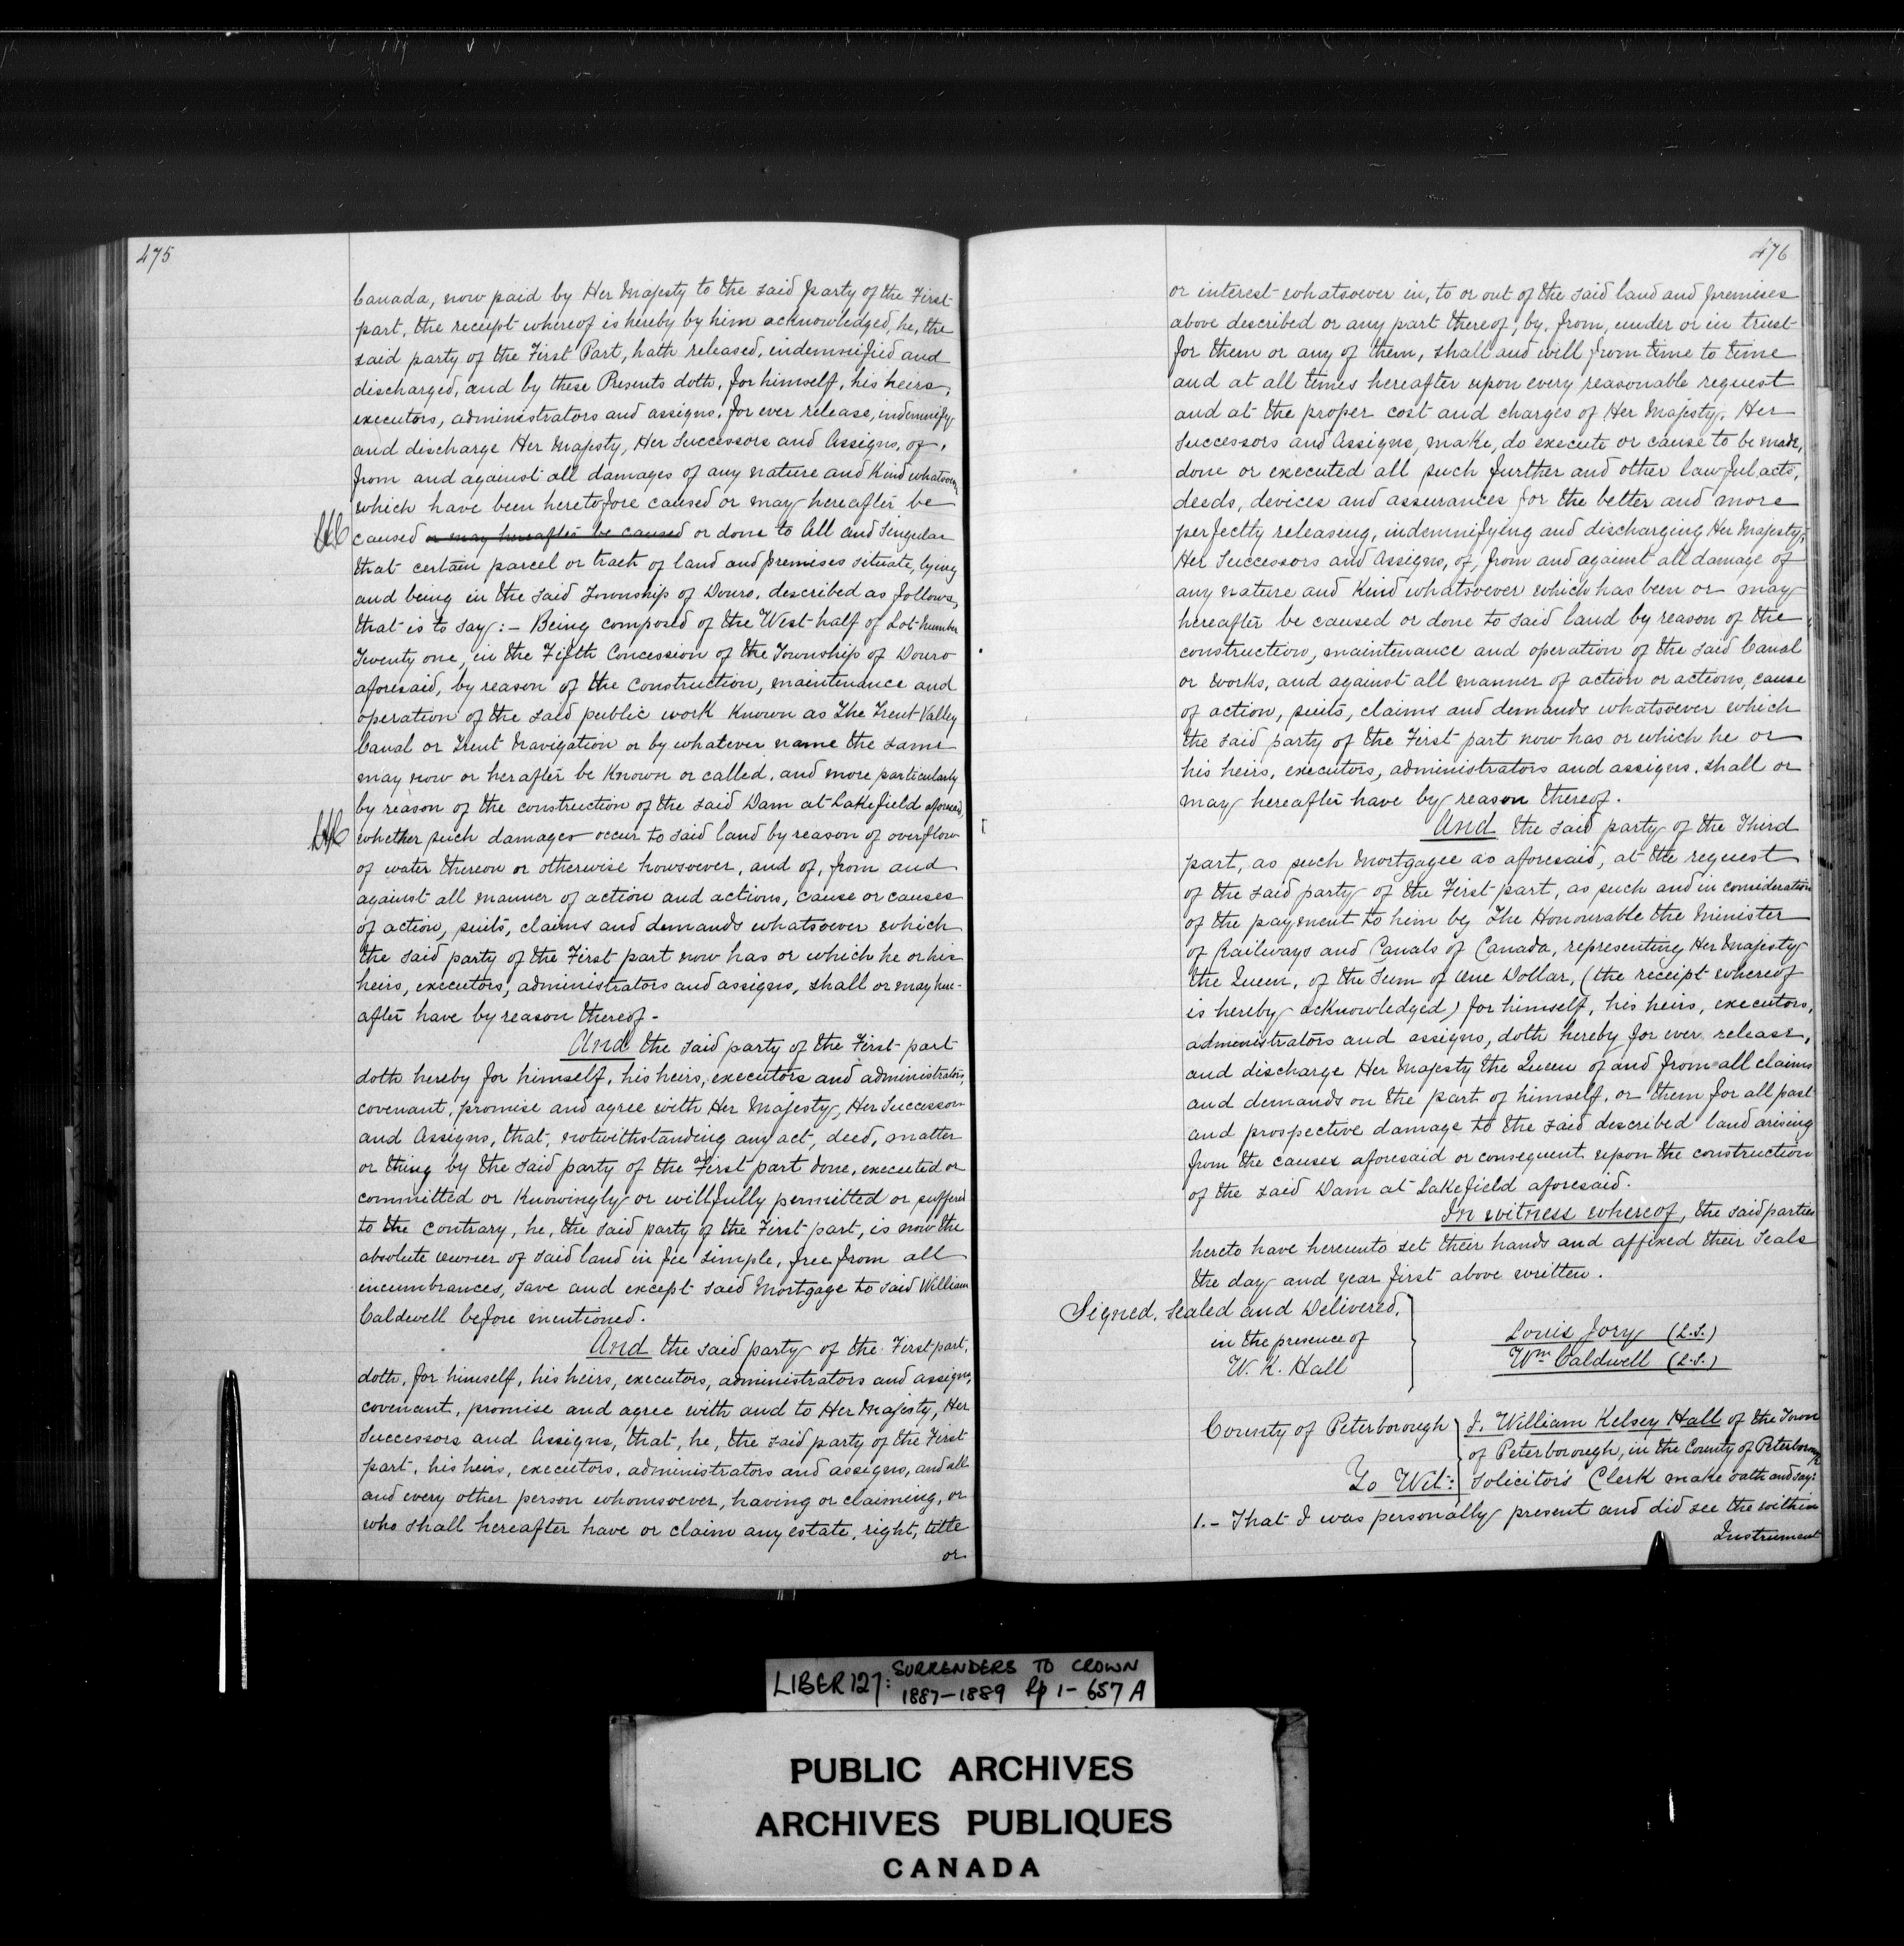 475
Canada, now paid by Her Majesty to the said party of the First
part, the receipt whereof is hereby by him acknowledged, he, the
said party of the First Part, hath released, indemnified and
discharged, and by these Presents doth, for himself, his heirs,
executors, administrators and assigns, for ever release, indemnify
and discharge Her Majesty, Her Successors and Assigns, of,
from and against all damages of any nature and Kind whatsoever
which have been heretofore caused or may hereafter be
caused or may hereafter be caused or done to All and Singular
that certain parcel or tract of land and premises situate, lying
and being in the said Township of Douro, described as follows,
that is to say:- Being composed of the West half of Lot Number
Twenty one, in the Fifth Concession of the Township of Douro
aforesaid, by reason of the Construction, maintenance and
operation of the said public work Known as The Trent Valley
Canal or Trent Navigation or by whatever name the same
may now or herafter be Known or called, and more particularly
by reason of the construction of the said Dam at Lakefield aforesaid
whether such damages occur to said land by reason of overflow
of water thereon or otherwise howsoever, and of, from and
against all manner of action and actions, cause or causes
of action, suits, claims and demands whatsoever which
the said party of the First part now has or which he or his
heirs, executors, administrators and assigns, shall or may here-
after have by reason thereof-
And the said party of the First part
doth hereby for himself, his heirs, executors and administrators,
covenant, promise and agree with Her Majesty, Her Successors
and Assigns, that, notwithstanding any act, deed, matter
or thing by the said party of the First part done, executed or
committed or Knowingly or willfully permitted or suffered
to the contrary, he, the said party of the First part, is now the
absolute owner of said land in fee simple, free from all
incumbrances, save and except said Mortgage to said William
Caldwell before mentioned.
And the said party of the First part,
doth, for himself, his heirs, executors, administrators and assigns,
covenant, promise and agree with and to Her Majesty, Her
Successors and Assigns, that, he, the said party of the First
part, his heirs, executors, administrators and assigns, and all
and every other person whomsoever, having or claiming, or
who shall hereafter have or claim any estate, right, title
or
476
or interest whatsoever in, to or out of the said land and premises
above described or any part thereof, by, from, under or in trust
for them or any of them, shall and will from time to time
and at all times hereafter upon every reasonable request
and at the proper cost and charges of Her Majesty, Her
Successors and Assigns, make, do execute or cause to be made,
done or executed all such further and other lawful acts,
deeds, devices and assurances for the better and more
perfectly releasing, indemnifying and discharging Her Majesty,
Her Successors and Assigns, of, from and against all damage of
any nature and Kind whatsoever which has been or may
hereafter be caused or done to said land by reason of the
construction, maintenance and operation of the said Canal
or works, and against all manner of action or actions, cause
of action, suits, claims and demands whatsoever which
the said party of the First part now has or which he or
his heirs, executors, administrators and assigns, shall or
may hereafter have by reason thereof.
And the said party of the Third
part, as such Mortgagee as aforesaid, at the request
of the said party of the First part, as such and in consideration
of the payment to him by The Honourable the Minister
of Railways and Canals of Canada, representing Her Majesty
the Queen, of the Sum of One Dollar, (the receipt whereof
is hereby acknowledged) for himself, his heirs, executors,
administrators and assigns, doth hereby for ever release,
and discharge Her Majesty the Queen of and from all claims
and demands on the part of himself, or them for all past
and prospective damage to the said described land arising
from the causes aforesaid or consequent upon the construction
of the said Dam at Lakefield aforesaid.
In witness whereof, the said parties
hereto have hereunto set their hands and affixed their Seals
the day and year first above written.
Signed, sealed and Delivered,
in the presence of
W. K. Hall
Louis Jory (L.S.)
Wm Caldwell (L.S.)
County of Peterborough
To Wit:
I, William Kelsey Hall of the Town
of Peterborough, in the County of Peterborough
Solicitor's Clerk make oath and say:
1.- That I was personally present and did see the within
Instrument
LIBER 127: SURRENDERS TO CROWN
1887-1889 Pp 1-657A
PUBLIC ARCHIVES
ARCHIVES PUBLIQUES
CANADA